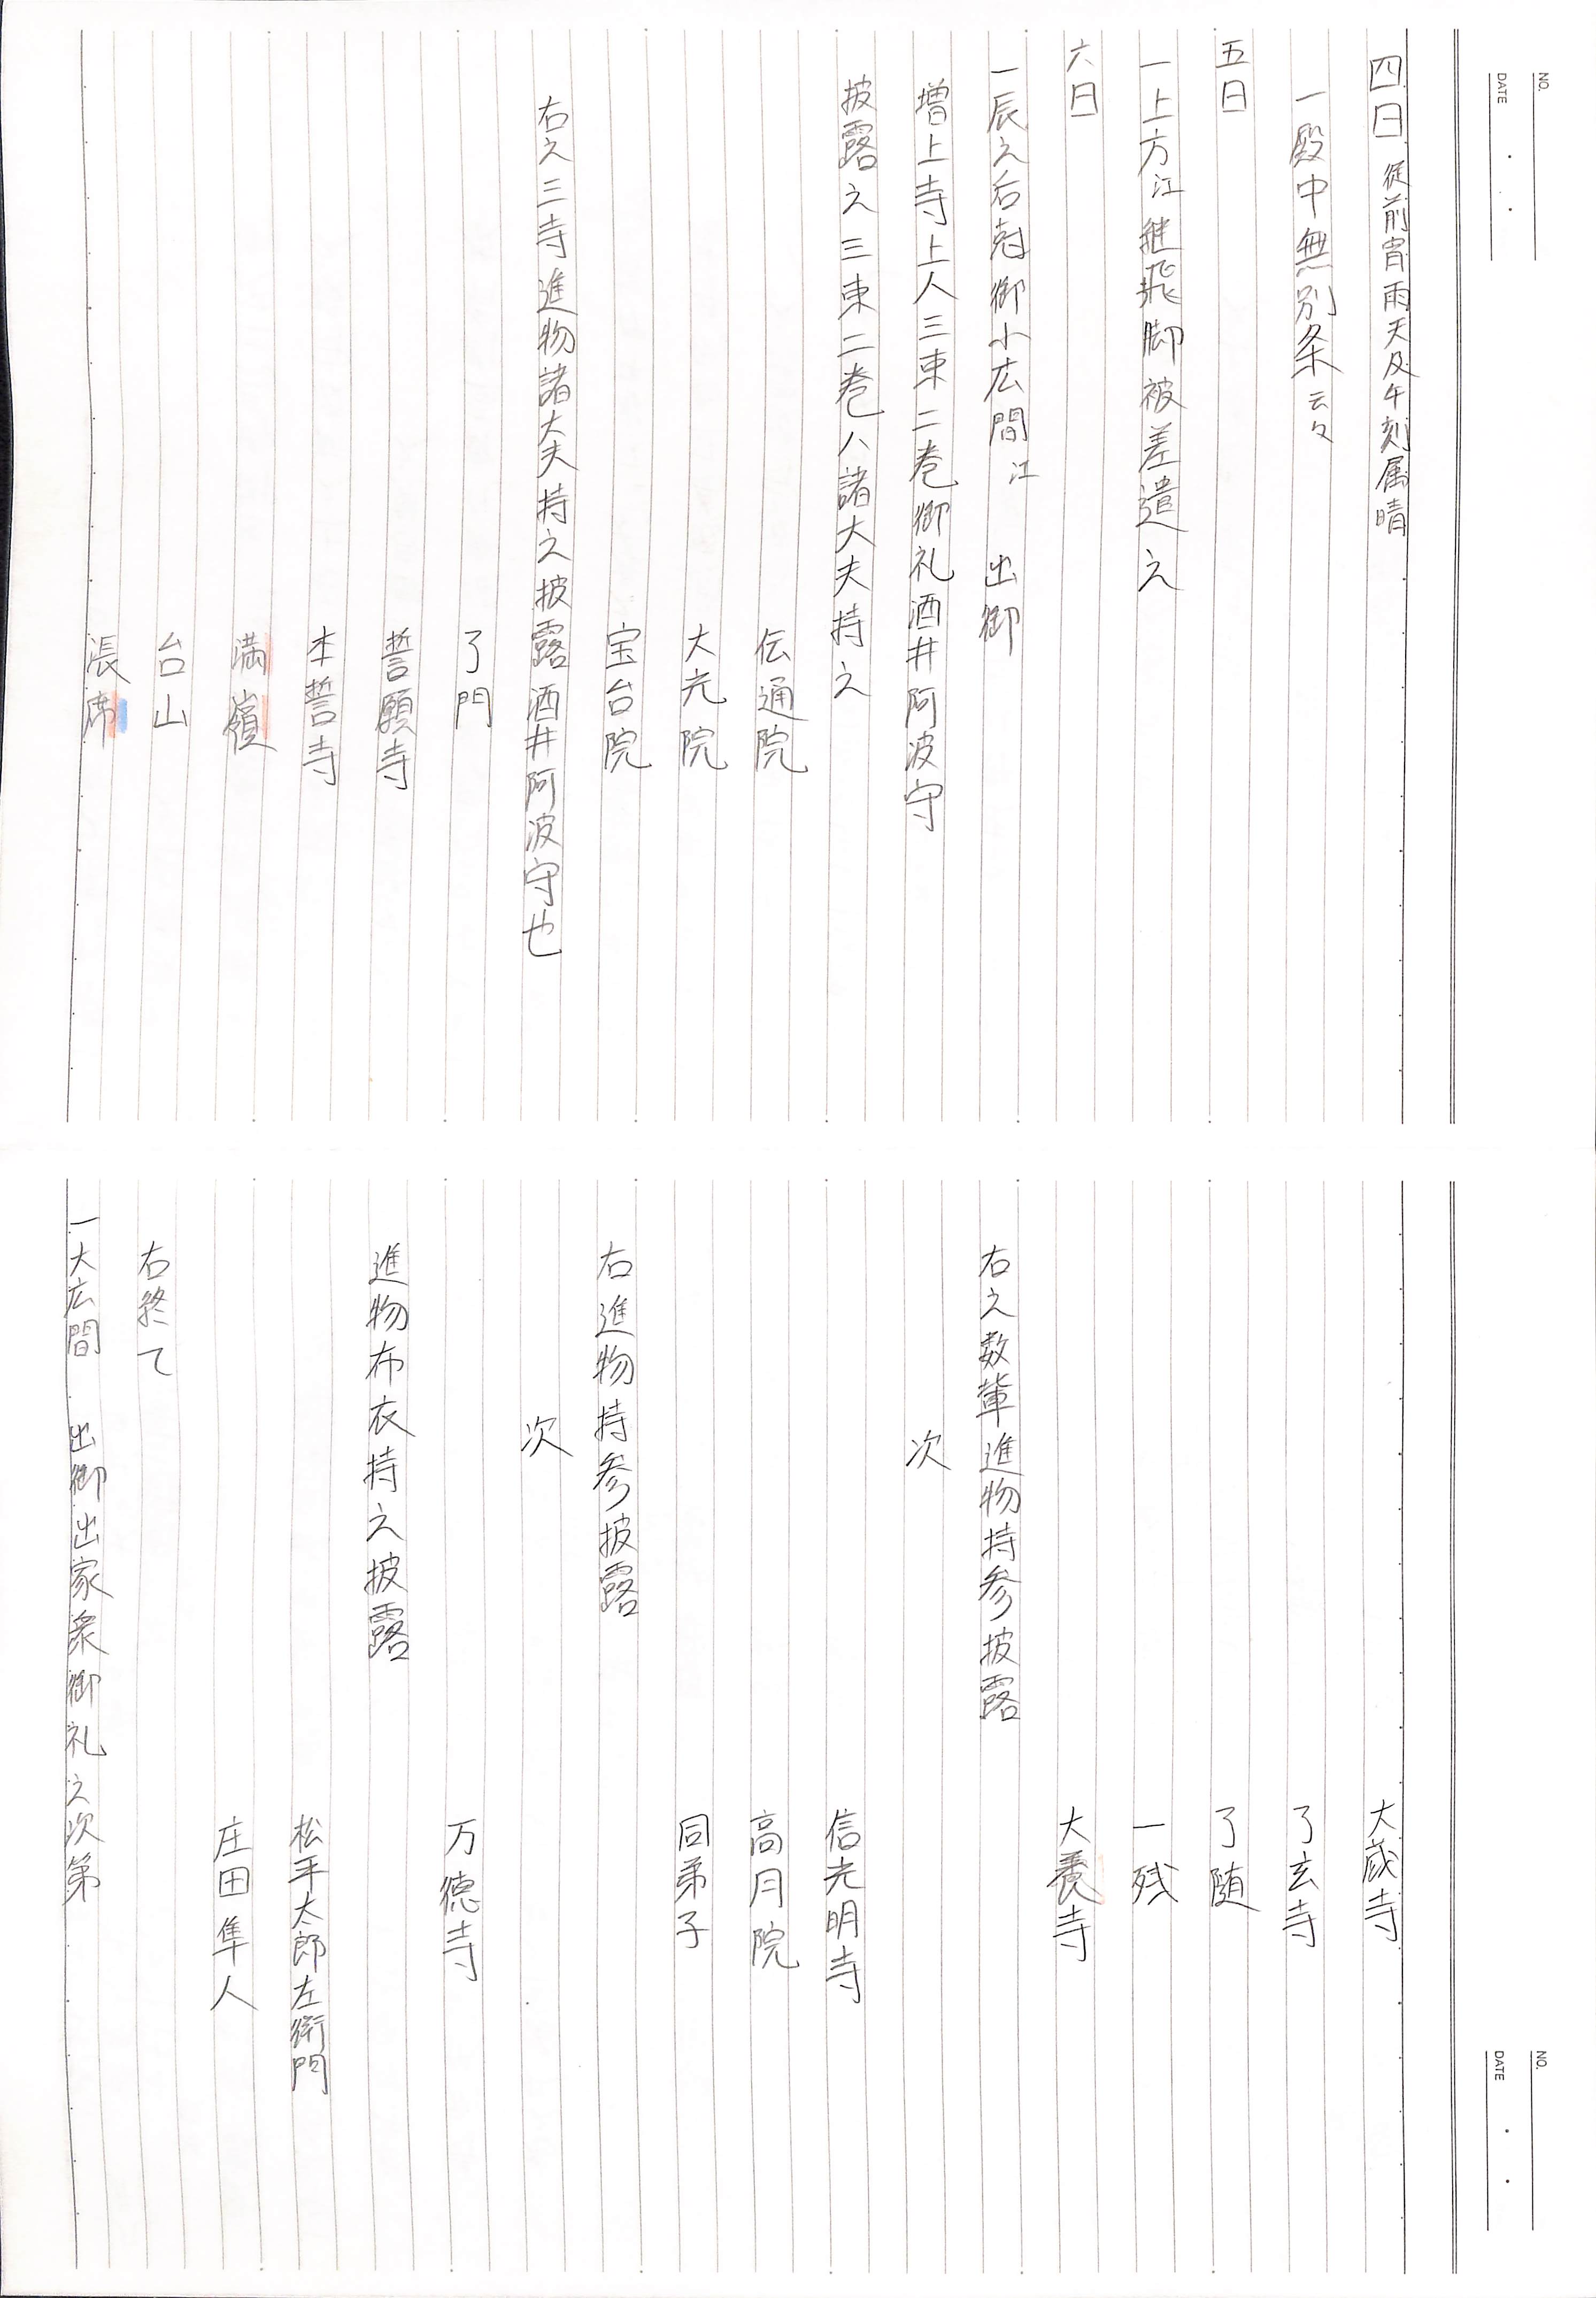 NO.
DATE
四日 従前宵雨天及午刻属晴
一殿中無別条云々
五日
一上方江継飛脚被差遣之
六日
一辰之后尅御小広間江 出御
増上寺上人三束二巻御礼酒井阿波守
披露之三束二巻ハ諸大夫持之
伝通院
大光院
宝台院
右之三寺進物諸大夫持之披露酒井阿波守也
了門
誓願寺
本誓寺
満嶺
台山
漲席
NO.
DATE
大歳寺
了玄寺
了随
一残
大養寺
右之数輩進物持参披露
次
信光明寺
高月院
同弟子
右進物持参披露
次
万徳寺
進物布衣持之披露
松平太郎左衛門
庄田隼人
右終て
一大広間 出御出家衆御礼之次第